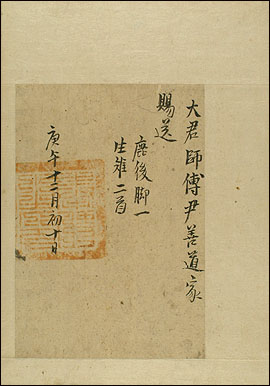 大君師傅尹善道家
賜送
鹿後脚一
生雉二首
庚午十二月初十日